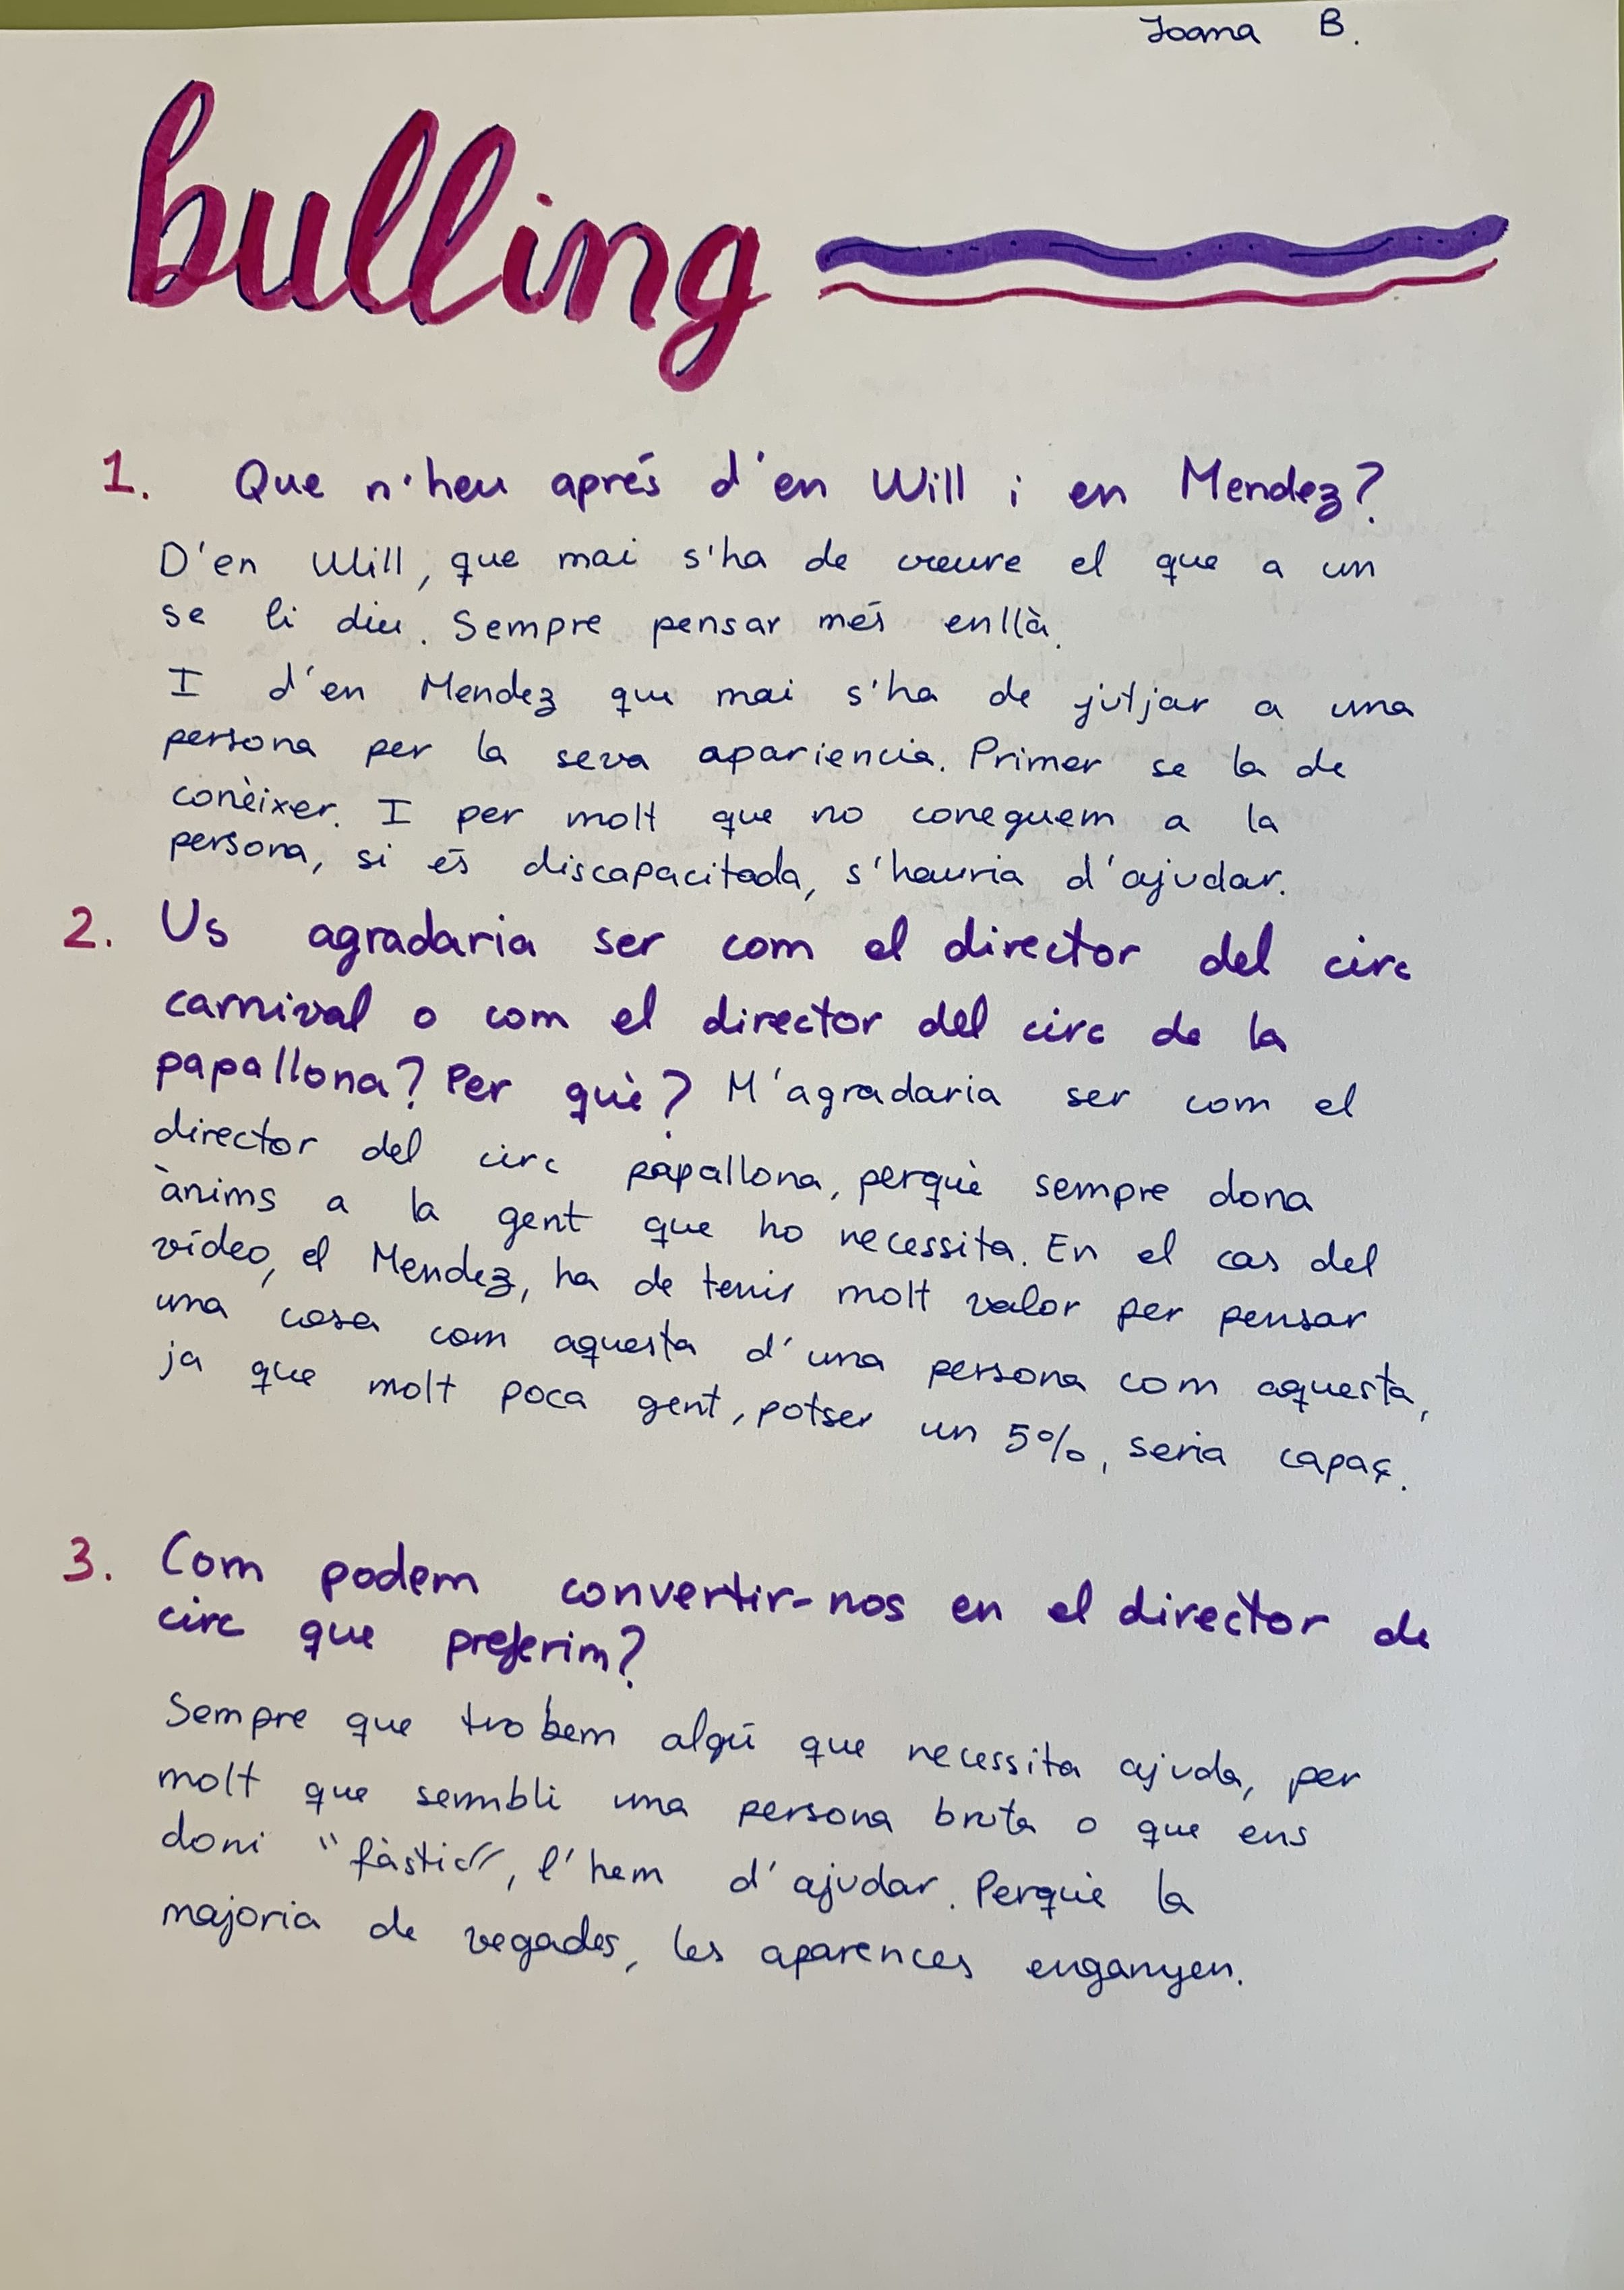 Joana B.
bulling
1. Que n'heu aprés d'en Will i en Mendez?
D'en Will, que mai s'ha de creure el que a un
se li diu. Sempre pensar més enllà.
I d'en Mendez que mai s'ha de jutjar a una
persona per la seva apariencia. Primer se la de
conèixer. I per molt que no coneguem a la
persona, si és discapacitada, s'hauria d'ajudar.
2. Us agradaria ser com el director del circ
carnival o com el director del circ de la
papallona? Per què? M'agradaria ser com el
director del circ papallona, perquè sempre dona
ànims a la gent que ho necessita. En el cas del
vídeo, el Mendez, ha de tenir molt valor per pensar
una cosa com aquesta d'una persona com aquesta,
ja que molt poca gent, potser un 5%, seria capaç.
3. Com podem convertir-nos en el director de
circ que preferim?
Sempre que trobem algú que necessita ajuda, per
molt que sembli una persona bruta o que ens
doni "fàstic", l'hem d'ajudar. Perquè la
majoria de vegades, les aparences enganyen.